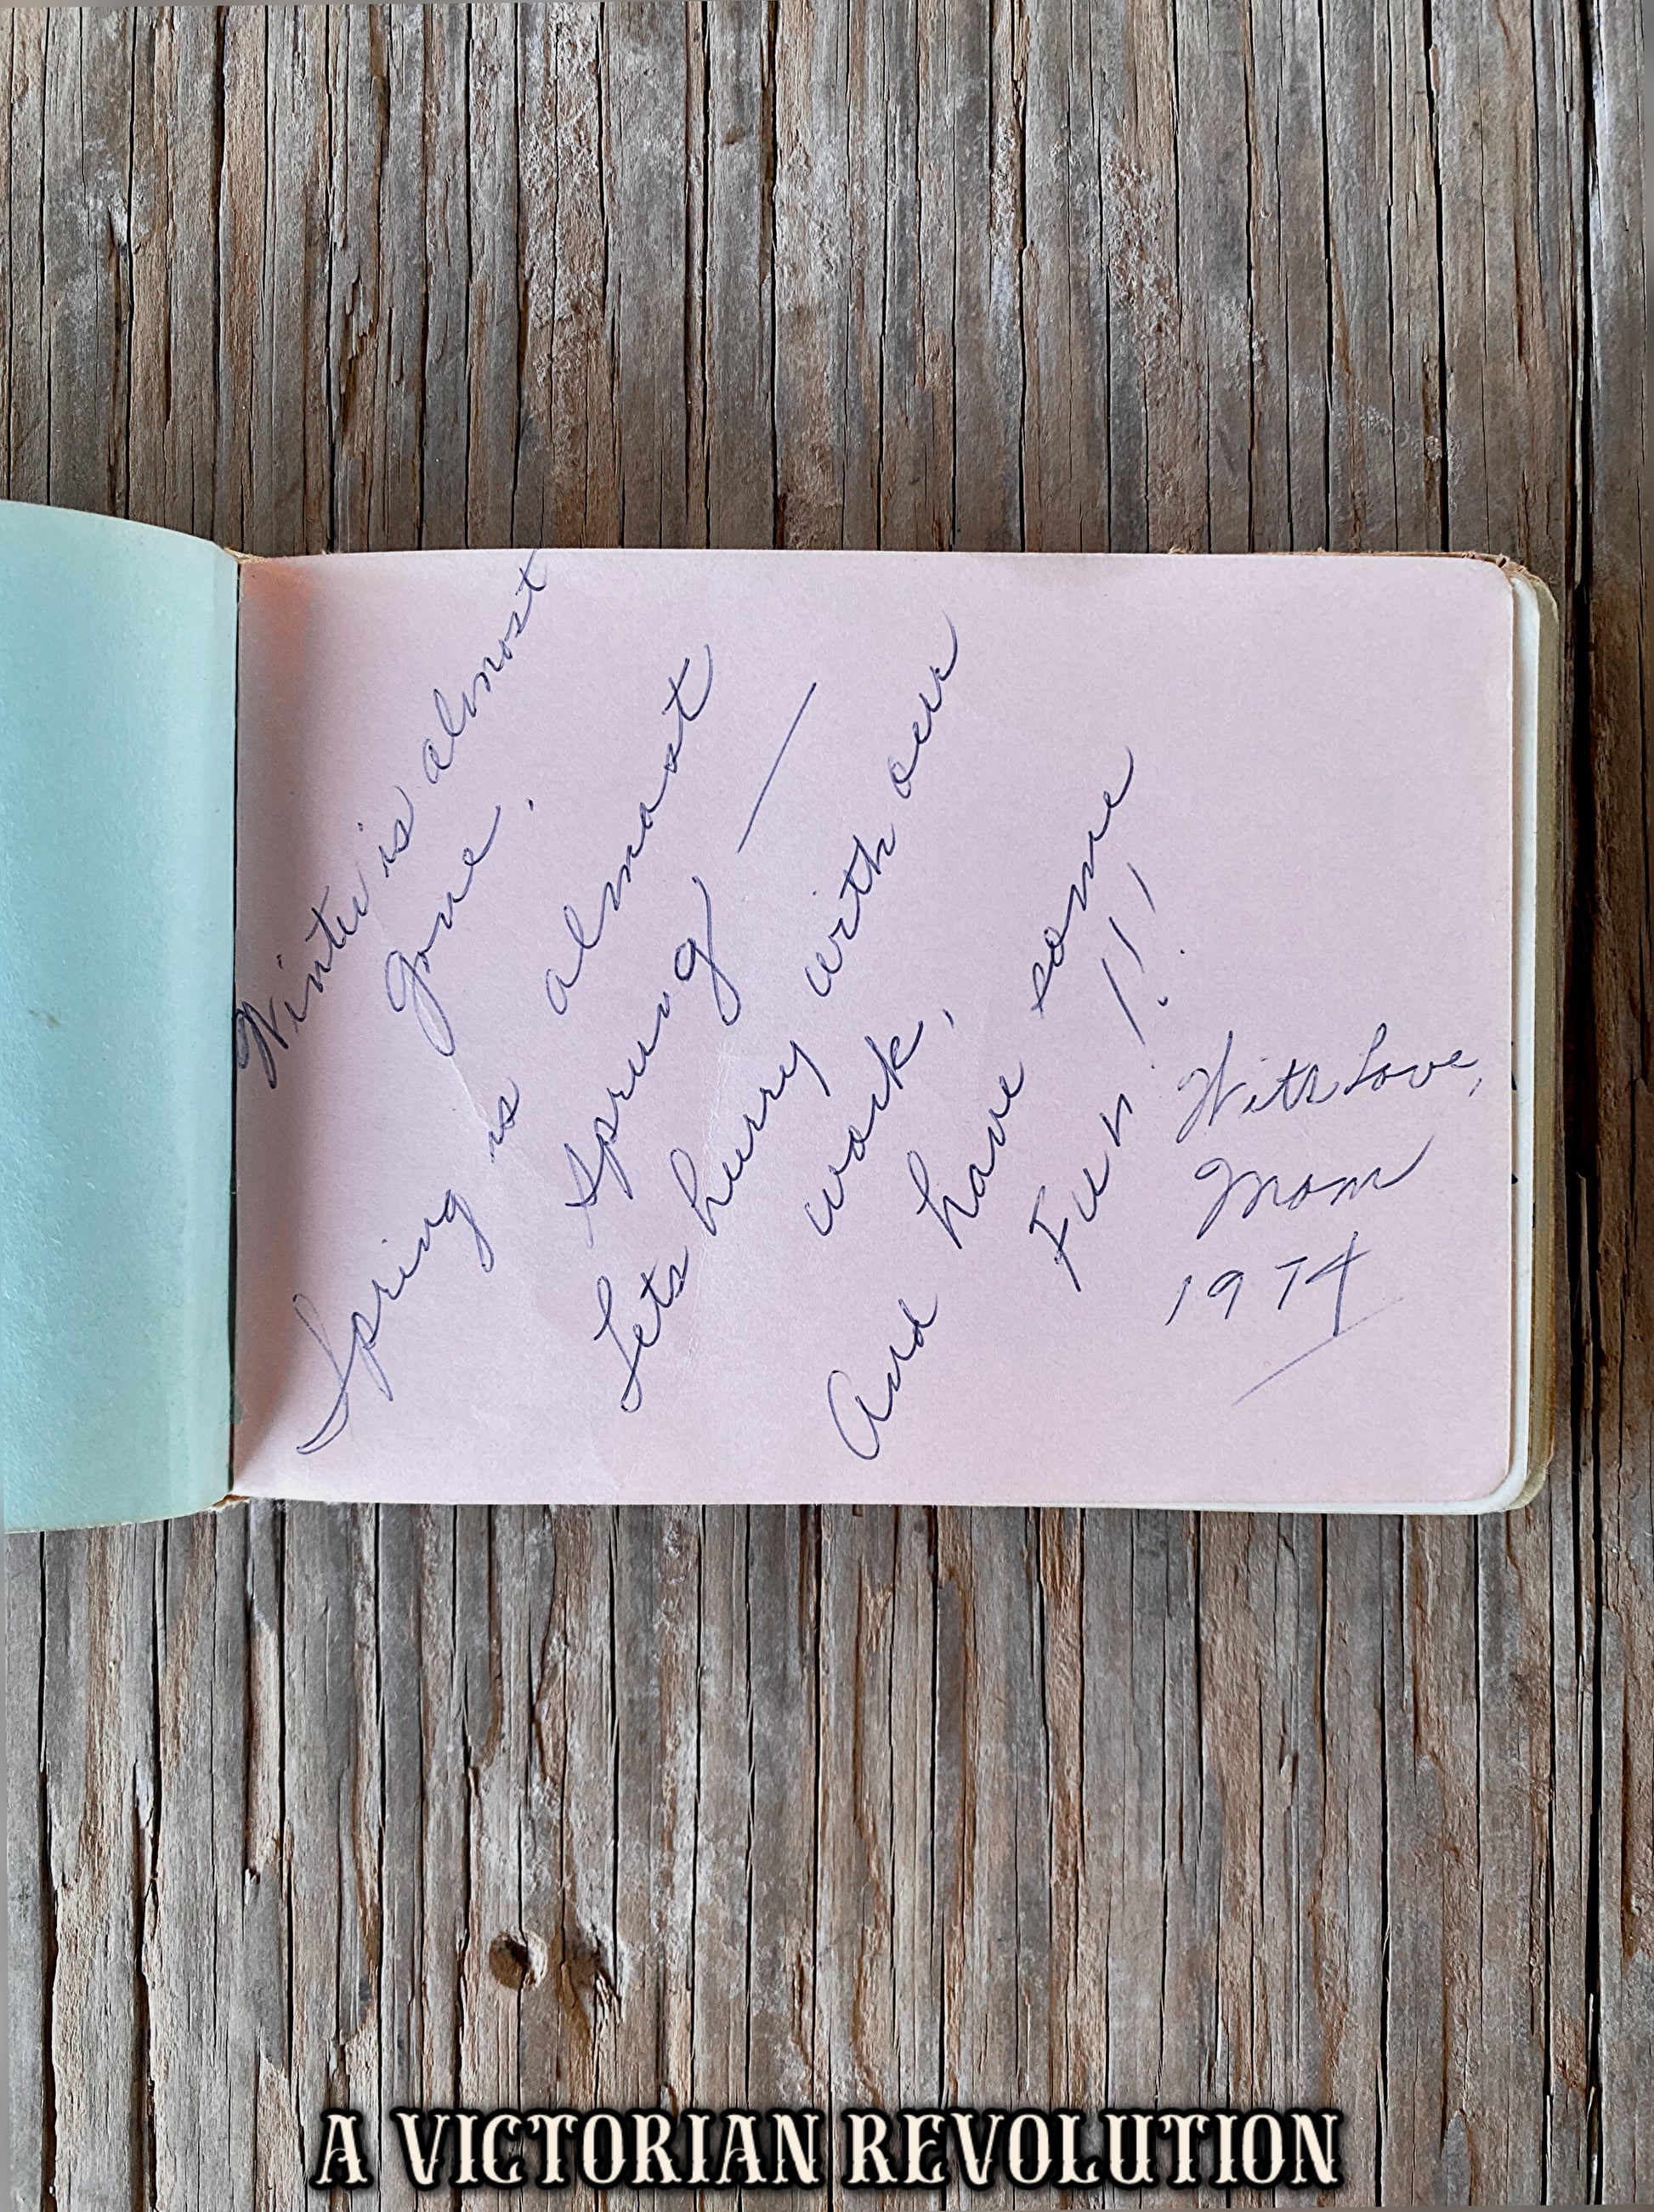 Winter is almost
gone.
Spring is almost
sprung —
Lets hurry with our
work,
And have some
Fun!!!
With Love,
Mom
1974
A VICTORIAN REVOLUTION